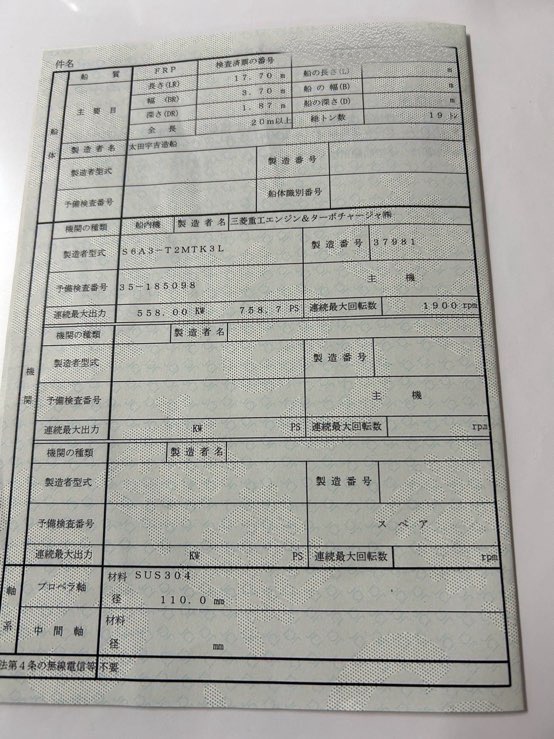 件名
船質 FRP 検査済票の番号
長さ(LR) 17.70 m 船の長さ(L) m
主要目 幅(BR) 3.70 m 船の幅(B) m
深さ(DR) 1.87 m 船の深さ(D) m
全長 20m以上 総トン数 19 トン
船体
製造者名 太田宇吉造船
製造者型式 製造番号
予備検査番号 船体識別番号
機関の種類 船内機 製造者名 三菱重工エンジン&ターボチャージャ㈱
製造者型式 S6A3-T2MTK3L 製造番号 37981
予備検査番号 35-185098 主機
連続最大出力 558.00 KW 758.7 PS 連続最大回転数 1900 rpm
機関の種類 製造者名
製造者型式 製造番号
機関
予備検査番号 主機
連続最大出力 KW PS 連続最大回転数 rpm
機関の種類 製造者名
製造者型式 製造番号
予備検査番号 スペア
連続最大出力 KW PS 連続最大回転数 rpm
軸系
プロペラ軸 材料 SUS304
径 110.0 mm
中間軸 材料
径 mm
法第4条の無線電信等 不要